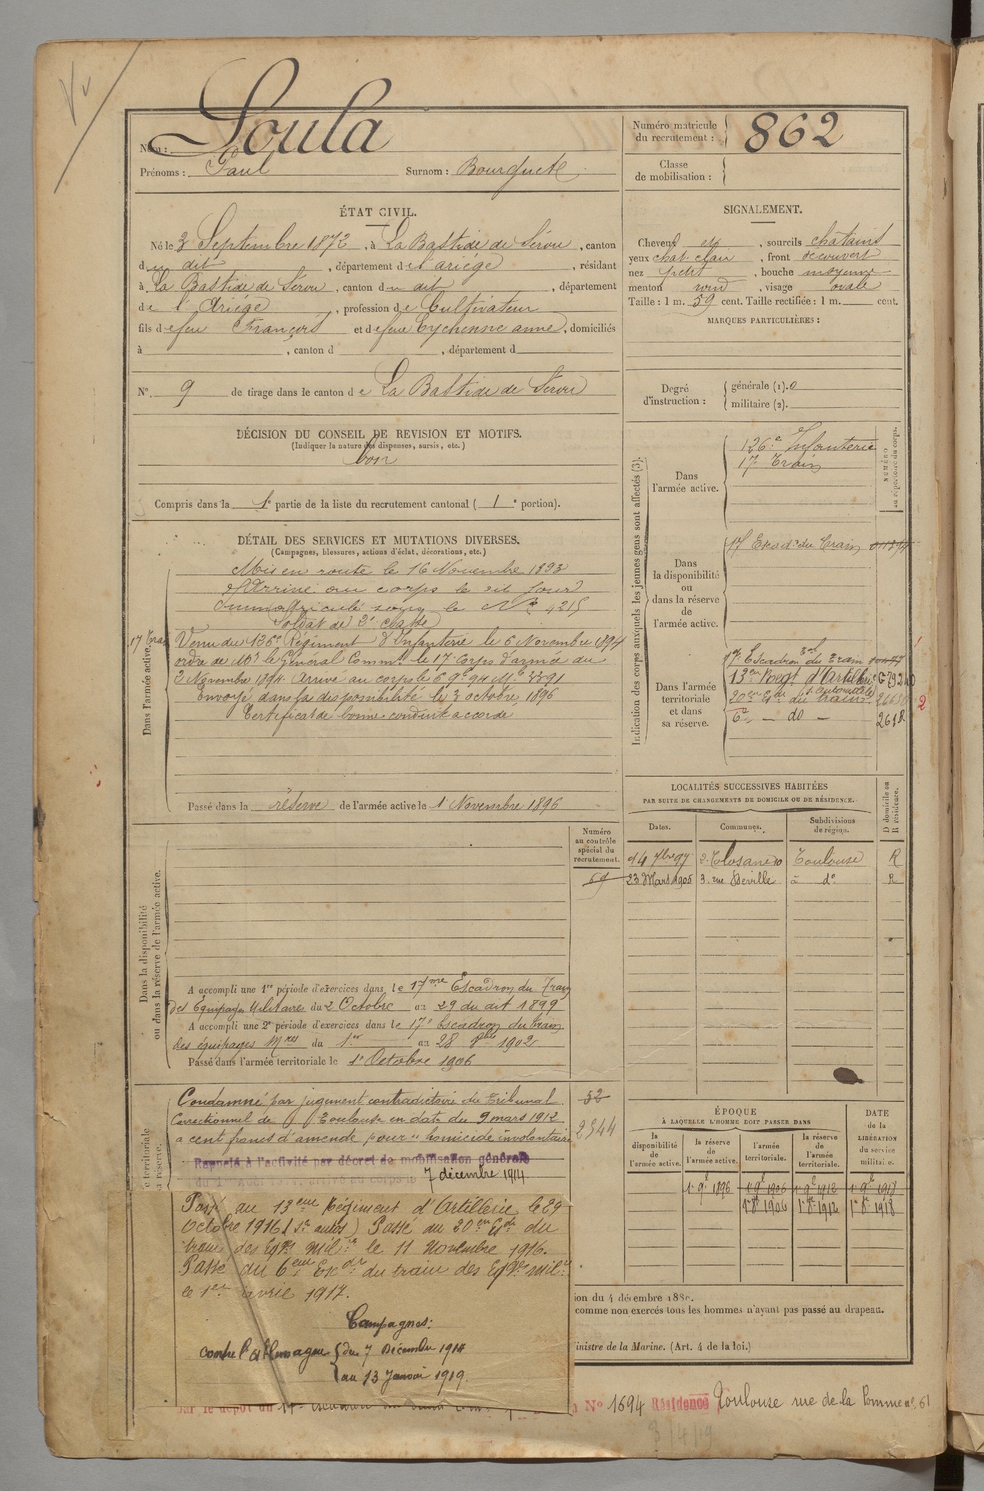 Nom : Soula
Prénoms : Paul Surnom : Bourguet
Numéro matricule du recrutement : 862
Classe de mobilisation :
ÉTAT CIVIL.
Né le 3 Septembre 1872, à La Bastide de Sérou, canton
du dit, département de l'ariège, résidant
à La Bastide de Sérou, canton du dit, département
de l'Ariège, profession de Cultivateur
fils de feu François et de feue Eychenne anne, domiciliés
à , canton d , département d
N° 9 de tirage dans le canton de La Bastide de Sérou
SIGNALEMENT.
Cheveux et , sourcils châtains
yeux chat. clair, front découvert
nez petit, bouche moyenne
menton rond, visage ovale
Taille : 1 m. 59 cent. Taille rectifiée : 1 m. cent.
MARQUES PARTICULIÈRES :
Degré d'instruction : générale (1). 0
militaire (2).
DÉCISION DU CONSEIL DE REVISION ET MOTIFS.
(Indiquer la nature des dispenses, sursis, etc.)
bon
Compris dans la 1e partie de la liste du recrutement cantonal ( 1e portion).
DÉTAIL DES SERVICES ET MUTATIONS DIVERSES.
(Campagnes, blessures, actions d'éclat, décorations, etc.)
Dans l'armée active.
17 Train
Mis en route le 16 Novembre 1893
Arrivé au corps le dit jour
immatriculé sous le N° 4215
Soldat de 2e classe
Venu du 126e Régiment d'Infanterie le 6 Novembre 1894
ordre de Mr le Général Comm. le 17 Corps d'armée du
2 Novembre 1894. Arrivé au corps le 6 9e 94 Mle 3391
Envoyé dans la disponibilité le 3 octobre 1896
Certificat de bonne conduite accordé
Passé dans la réserve de l'armée active le 1 Novembre 1896
Indication des corps auxquels les jeunes gens sont affectés (3).
NUMÉRO au répertoire du corps.
Dans l'armée active.
126e Infanterie
17e Train
Dans la disponibilité ou dans la réserve de l'armée active.
17 Escadr. du Train
Dans l'armée territoriale et dans sa réserve.
17 Escadron du Train
13em Regt d'Artillerie
20em Er du train
6e — do —
2612
LOCALITÉS SUCCESSIVES HABITÉES
PAR SUITE DE CHANGEMENTS DE DOMICILE OU DE RÉSIDENCE.
Dates. Communes. Subdivisions de région. D domicile ou R résidence.
14 7bre 97 Toulouse R
23 Mars 1905 3. rue Deville à do R
Dans la disponibilité ou dans la réserve de l'armée active.
Numéro au contrôle spécial du recrutement.
A accompli une 1re période d'exercices dans le 17me Escadron du Train
des Equipages Militaires du 2 Octobre au 29 du dit 1899
A accompli une 2e période d'exercices dans le 17e Escadron du Train
des équipages Mres du 1er au 28 8bre 1902
Passé dans l'armée territoriale le 1e Octobre 1906
Condamné par jugement contradictoire du Tribunal
Correctionnel de Toulouse en date du 9 mars 1912
a cent francs d'amende pour "homicide involontaire
52
2544
Rappelé à l'activité par décret de mobilisation générale
7 décembre 1914.
Passé au 13eme Régiment d'Artillerie le 29
Octobre 1916 (Sn autos) Passé au 20em Eson du
train des Eqges Milres le 11 Novembre 1916.
Passé au 6eme Escon du train des Eqges Milres
le 1er avril 1917.
Campagnes:
contre l'Allemagne du 7 Décembre 1914
au 13 Janvier 1919.
ÉPOQUE
À LAQUELLE L'HOMME DOIT PASSER DANS
la disponibilité de l'armée active. la réserve de l'armée active. l'armée territoriale. la réserve de l'armée territoriale.
DATE de la LIBÉRATION du service militaire.
1e 9e 1896 1e 9e 1906 1e 9e 1912 1e 9e 1918
1e 8e 1906 1e 8e 1912 1e 8e 1918
comme non exercés tous les hommes n'ayant pas passé au drapeau.
ministre de la Marine. (Art. 4 de la loi.)
N° 1694 Résidence Toulouse rue de la Pomme n° 61
3/4/19